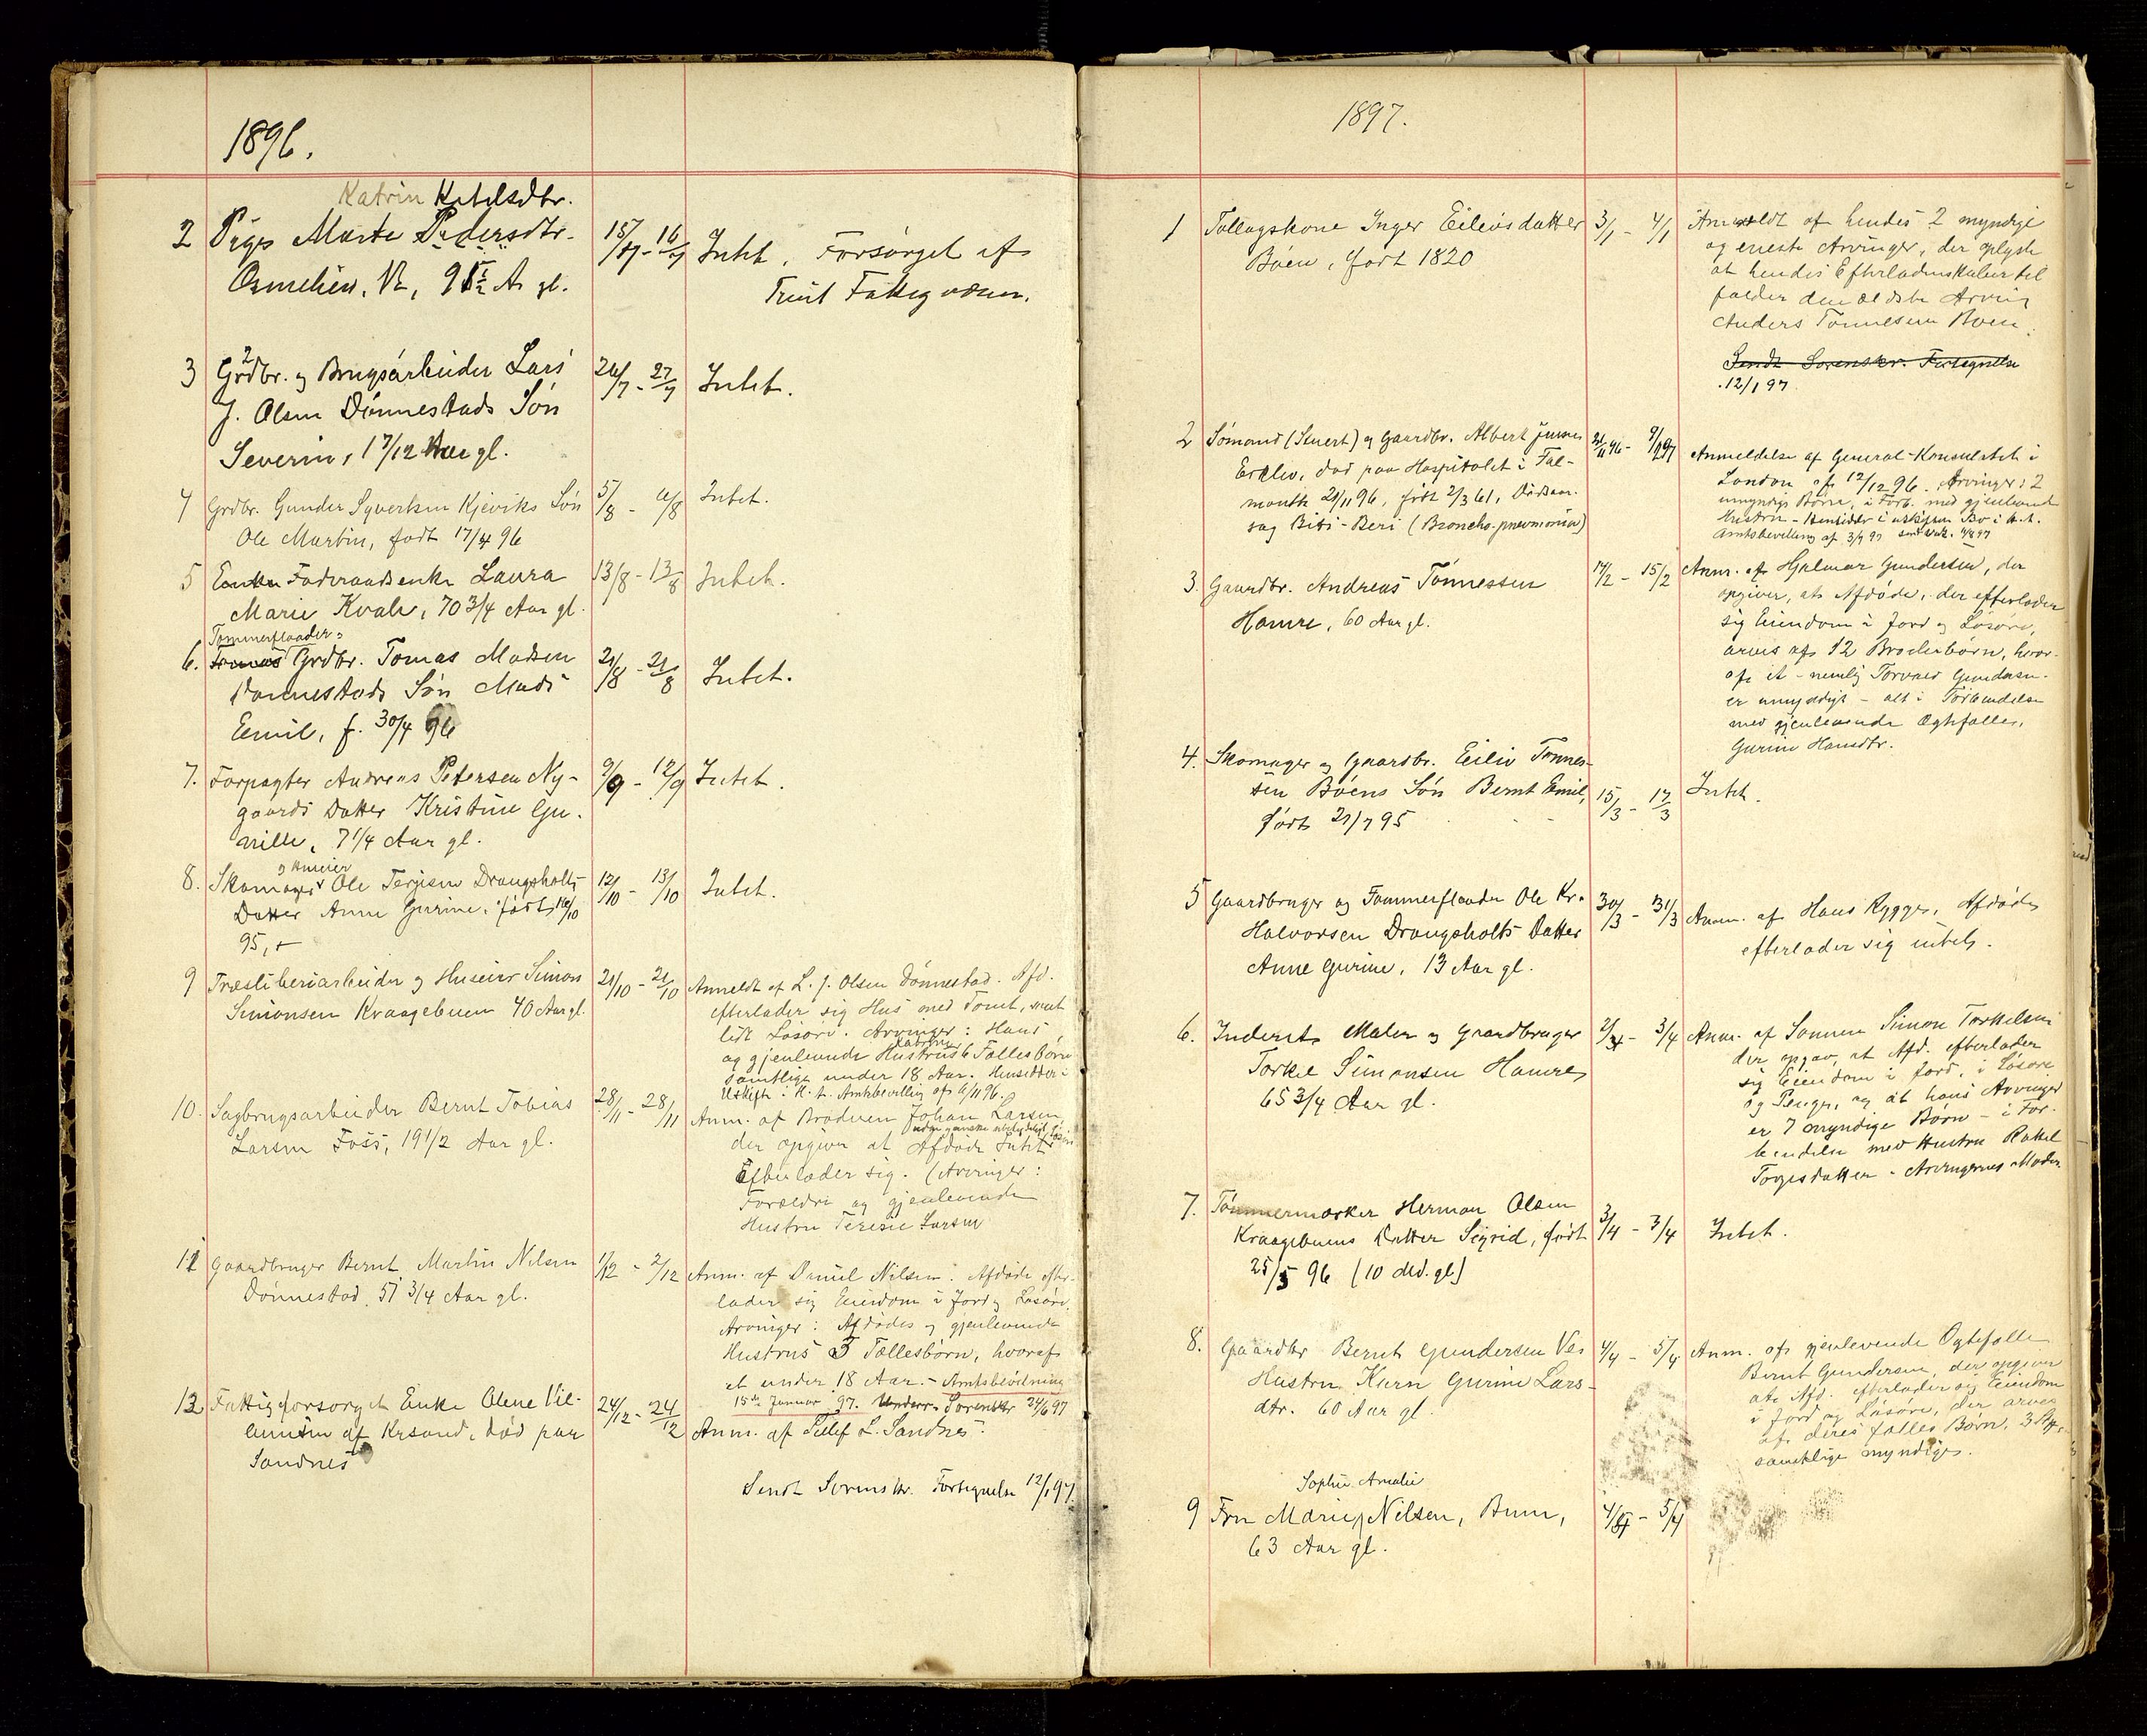 1896.
Katrin Ketilsdtr.
2 Pige Marte Pedersdtr.
Vn, 91 1/2 A. gl.
15/7 - 16/7
Intet. Forsørget af
Tveit Fattigvæsen.
3 Grdbr. og Brugsarbeider Lars
J. Olsen Dønnestads Søn
Severin, 1 7/12 Aar gl.
26/7 - 27/7
Intet.
4 Grdbr. Gunder Syvertsen Kjeviks Søn
Ole Martin, født 17/4 96
5/8 - 6/8
Intet.
5 Enke Føderaadsenke Laura
Marie Kvale, 70 3/4 Aar gl.
13/8 - 13/8
Intet.
Tømmerfløder
6. Tomas Grdbr. Tomas Madsen
Dønnestads Søn Mads
Emil, f. 30/4 96
21/8 - 21/8
Intet.
7. Forpagter Andreas Petersen Ny-
gaards Datter Kristine Gu-
nille, 7 1/4 Aar gl.
9/9 - 12/9
Intet.
og Huseier
8. Skomager Ole Terjesen Drangsholts
Datter Anne Gurine, født 16/10
95, +
12/10 - 13/10
Intet.
9 Træsliberiarbeider og Huseier Simon
Simonsen Kraagebuen 40 Aar gl.
21/10 - 21/10
Anmeldt af L. J. Olsen Dønnestad. Afd.
efterlader sig Hus med Tomt, samt
lidt Løsøre. Arvinger: Hans
Katrine
og gjenlevende Hustrus 6 Fællesbørn
samtlige under 18 Aar. Hensidder i
Uskifte i H. t. Amtsbevilling af 6/11 96.
10. Sagbrugsarbeider Bernt Tobias
Larsen Foss, 19 1/2 Aar gl.
28/11 - 28/11
Anm. af Broderen Johan Larsen
der opgiver at Afdøde Intet
Efterlader sig. (Arvinger:
Forældre og gjenlevende
Hustru Terese Larsen
11 Gaardbruger Bernt Martin Nilsen
Dønnestad, 51 3/4 Aar gl.
1/12 - 2/12
Anm. af Daniel Nilsen. Afdøde efter-
lader sig Eiendom i Jord og Løsøre.
Arvinger: Afdødes og gjenlevende
Hustrus 3 Fællesbørn, hvoraf
et under 18 Aar. - Amtsbevilling
15de Januar 97. Underr. Sorenskr 24/6 97
12 Fattigforsørget Enke Olene Vil-
af Krsand, død paa
Sandnes
24/12 - 24/12
Anm. af Tellef L. Sandnes.
Sendt Sorenskr. Fortegnelse 12/1 97
1897.
1 Føllugskone Inger Eilevsdatter
Bøen, født 1820
3/1 - 4/1
Anmeldt af hendes 2 myndige
og eneste Arvinger, der oplyste
at hendes Efterladenskaber til
falder den ældste Arving
Anders Tønnesen Bøen.
Sendt Sorenskr. Fortegnelse
12/1 97.
2 Sømand (Stuert) og Gaardbr. Albert James
død paa Hospitalet i Fal-
mouth 21/11 96, født 2/3 61, Dødsaar-
sag Biti-Beri (Broncho-pneumonia)
21/11 96 - 9/1 97
Anmeldelse af General-Konsulatet i
London af 12/12 96. Arvinger: 2
umyndige Børn, i Forb. med gjenlevend
Hustru - Hensidder i uskiftet Bo i H. t.
Amtsbevilling af 3/9 97
3. Gaardbr. Andreas Tønnessen
Hamre, 60 Aar gl.
14/2 - 15/2
Anm. af Hjalmar Gundersen, der
opgiver, at Afdøde, der efterlader
sig Eiendom i Jord og Løsøre,
arves af 12 Broderbørn, hvor-
af et - nemlig Torvald Gundersen -
er umyndigt - alt i Forbindelse
med gjenlevende Ægtefælle,
Gurine Hansdtr.
4. Skomager og Gaardbr. Eiliv Tønnes-
sen Bøens Søn Bernt Emil,
født 21/7 95
15/3 - 17/3
Intet.
5 Gaardbruger og Tømmerfløder Ole Kr.
Halvorsen Drangsholts Datter
Anne Gurine, 13 Aar gl.
30/3 - 31/3
Anm. af Hans Rygge, Afdøde
efterlader sig intet.
6. Inderst, Maler og Gaardbruger
Torkel Simonsen Hamre,
65 3/4 Aar gl.
2/4 - 3/4
Anm. af Sønnen Simon Torkelsen
der opgav, at Afd. efterlader
sig Eiendom i Jord, i Løsøre
og Penge, og at hans Arvinger
er 7 myndige Børn - i For-
bindelse med Hustru Rakel
Torjesdatter - Arvingernes Moder
7. Tømmermærker Herman Olsen
Kraagebuens Datter Sigrid, født
25/5 96 (10 Md. gl.)
3/4 - 3/4
Intet.
8. Gaardbr Bernt Gundersen Ves
Hustru Karn Gurine Lars-
dtr. 60 Aar gl.
4/4 - 5/4
Anm. af gjenlevende Ægtefælle
Bernt Gundersen, der opgiver
at Afd. efterlader sig Eiendom
i Jord og Løsøre, der arves
af deres fælles Børn, 3 Stk.
samtlige myndige.
Sophie Amalie
9 Fru Marie Nilsen, Boen,
63 Aar gl.
4/4 - 5/4